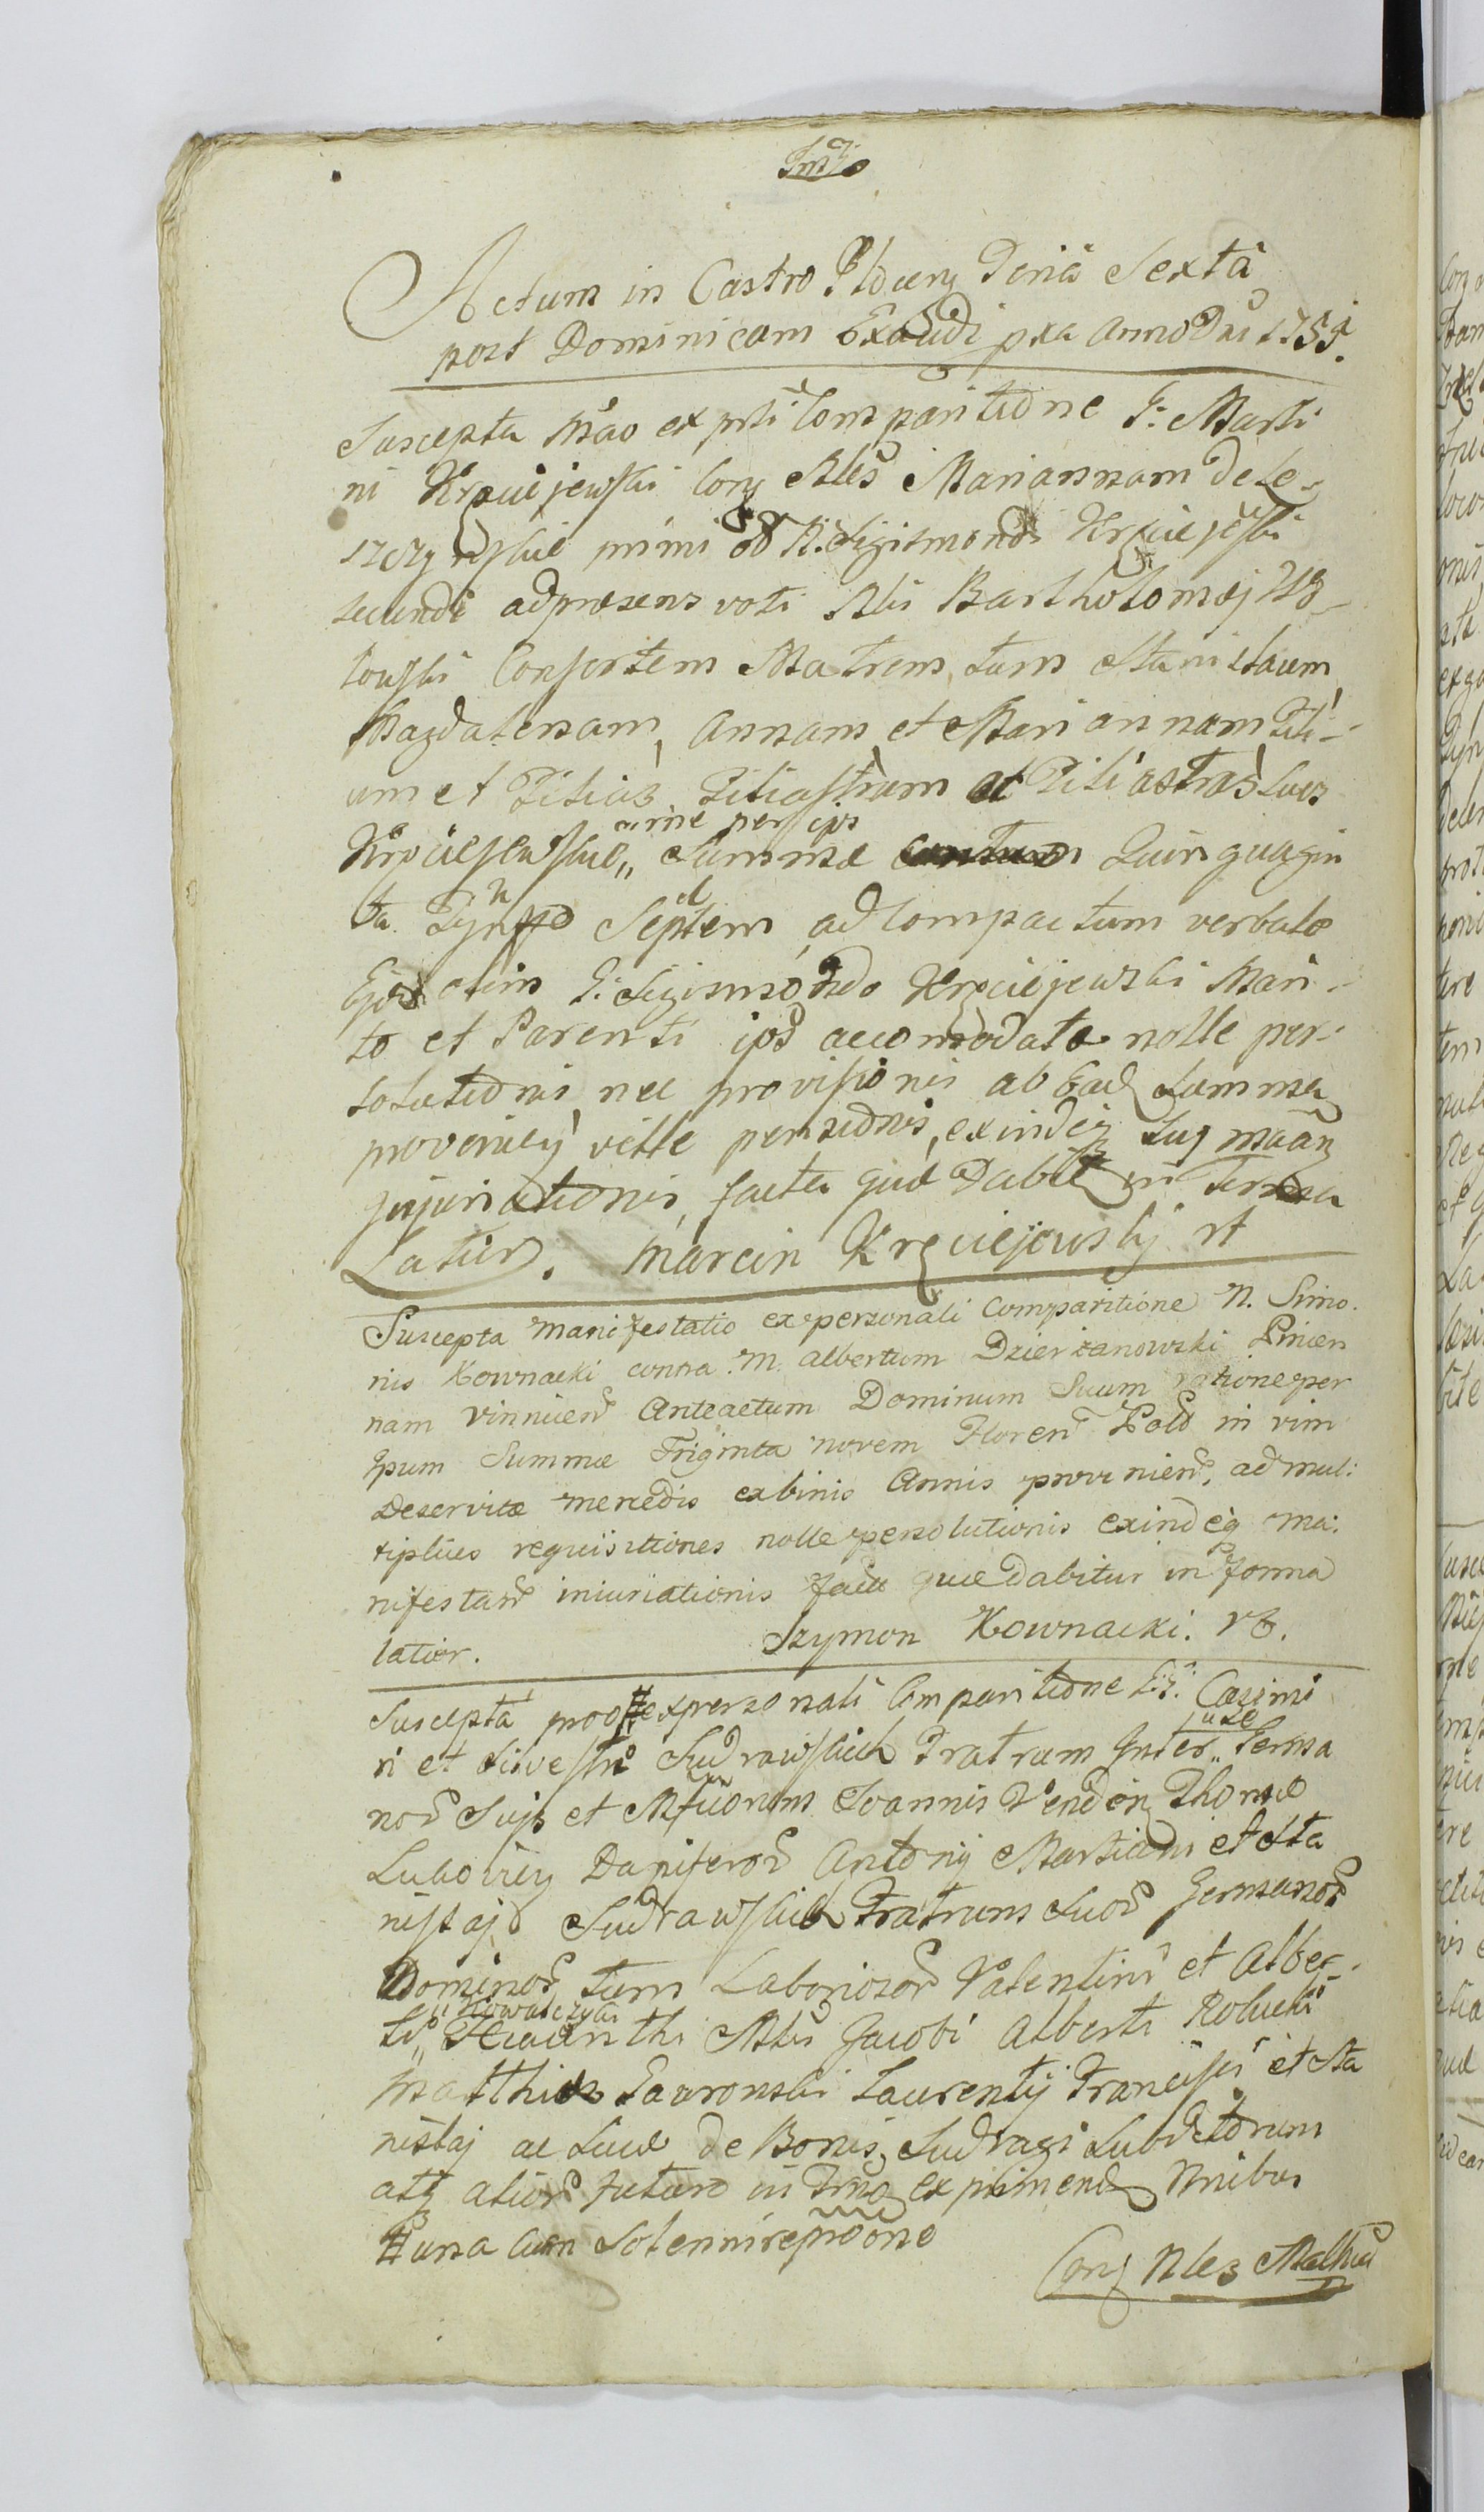 Actum in Castro Plocen Feriâ Sextâ
post Dominicam Exaudi pxa Anno Dni 1754
Suscepta mão ex prsli Comparitione G: Marti
ni Krzciejewski Con Nles Mariannam de Le-
szczynskie primi od N. Sigismondi Krzciejewski
secundi ad præsens voti Nlis Bartholomæj
Consortem Matrem, tum Stanislaum
Magdalenam, Annam et Mariannam Fili-
um et Filias, Filiastrum et Filiastras suos
Krzciejewskie,, Summæ Quinquagin
ōrne per ips
ta Tynffo Septem, ad Compactum verbale
olim G: Sigismondo Krzciejewski Mari-
to et Parenti ipõ accomodata nolle per-
solutionis, nec provisionis ab Ead Summa
provenien velle pensionis, exindeq Suq maãn
Injuriationis, facta que Dabit in Forma
Latiori. Marcin Krzciejewskij rt
Suscepta manifestatio ex personali Comparitione N. Simo.
nis Kownacki contra M. Albertum Dzierżanowski Pincer
nam Vinnicen Anteactum Dominum Suum ratione per
Ipsum Summæ Triginta novem Floren Pold in vim
Deservitæ mercedis ex binis Annis provenien, ad mul:
tiplices requisitiones nolle persolutionis exindeq ma:
nifestan iniuriationis facta quæ dabitur in forma
latior. Szymon Kownacki. rt.
Suscepta pro ex personali Comparitione G:G: Casimi
ri et Silvestri Sudrawskich Fratrum Inter,, Germa
se
nor Sujs et Mficorum Joannis Venden Thomæ
Dapiferor Antonij Martiani et Sta
nislaj Sudrawskich Fratrum Suor Germanor
Dominor, tum Laboriosor Valentini et Alber-
Kowalczyki
ti,, Hiacinthi Nlis Jacobi Alberti
Matthiæ Gawronski Laurentij Francisci et Sta
nislaj ac Lucæ de Bonis Sudragi Subditorum
atq alior futuro in Trno exprimend Nnibus
una cum Solenni reproõne
Con Nles Mathia